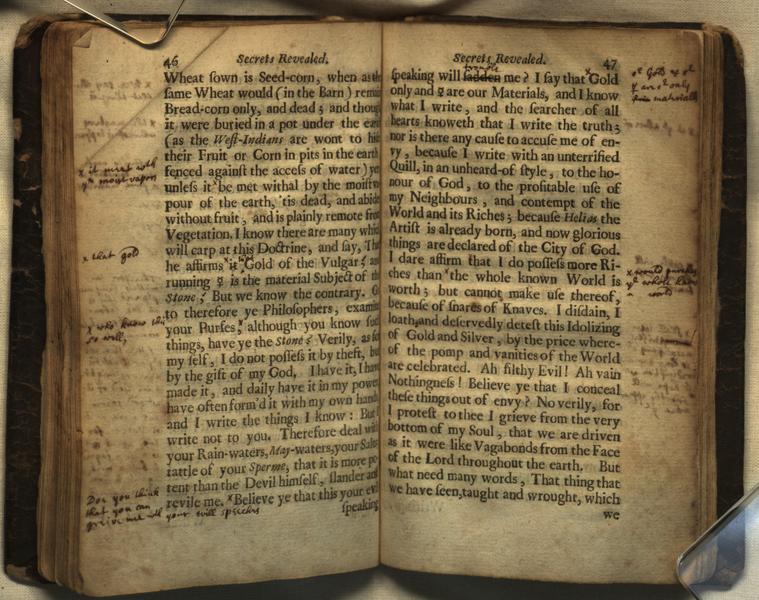 46
Secrets Revealed.
Wheat ſown is Seed-corn, when as the
ſame Wheat would (in the Barn) remai
Bread-corn only, and dead; and thoug
it were buried in a pot under the ear
(as the Weſt-Indians are wont to hid
their Fruit or Corn in pits in the earth
fenced againſt the acceſs of water) ye
x it meet with
ye moiſt vapor
unleſs it x be met withal by the moiſt va
pour of the earth, 'tis dead, and abide
without fruit, and is plainly remote from
Vegetation. I know there are many whic
will carp at this Doctrine, and ſay, Th
x that gold
he affirms x it Gold of the Vulgar; an
running ☿ is the material Subject of th
Stone; But we know the contrary. G
to therefore ye Philoſophers, examin
x who know theſe
ſo well,
your Purſes x although you know ſuc
things, have ye the Stone? Verily, as fo
my ſelf, I do not poſſeſs it by theft, but
by the gift of my God, I have it, I have
made it, and daily have it in my power
have often form'd it with my own hands
and I write the things I know: But I
write not to you. Therefore deal with
your Rain-waters, May-waters, your Salts
tattle of your Sperme, that it is more po-
tent than the Devil himſelf, ſlander and
Doe you think
that you can
greive me wth your evill ſpeeches
revile me. x Believe ye that this your evil
ſpeaking
47
Secrets Revealed.
trouble
ſpeaking will ſadden me? I ſay that x Gold
only and ☿ are our Materials, and I know
what I write, and the ſearcher of all
hearts knoweth that I write the truth;
nor is there any cauſe to accuſe me of en-
vy, becauſe I write with an unterrified
Quill, in an unheard-of ſtyle, to the ho-
nour of God, to the profitable uſe of
my Neighbours, and contempt of the
World and its Riches; becauſe Helias the
Artiſt is already born, and now glorious
things are declared of the City of God.
I dare affirm that I do poſſeſs more Ri-
ches than x the whole known World is
worth; but cannot make uſe thereof,
becauſe of ſnares of Knaves. I diſdain, I
loath, and deſervedly deteſt this Idolizing
of Gold and Silver, by the price where-
of the pomp and vanities of the World
are celebrated. Ah filthy Evil! Ah vain
Nothingneſs! Believe ye that I conceal
theſe things out of envy? No verily, for
I proteſt to thee I grieve from the very
bottom of my Soul, that we are driven
as it were like Vagabonds from the Face
of the Lord throughout the earth. But
what need many words, That thing that
we have ſeen, taught and wrought, which
we